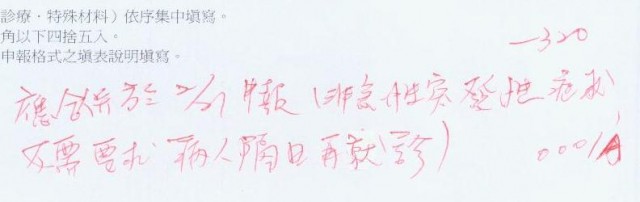 診療、特殊材料)依序集中填寫。
角以下四捨五入。
申報格式之填表說明填寫。
-320
應合併於2/21申報(非急性突發性症狀
又需要求病人隔日再就診)
0001